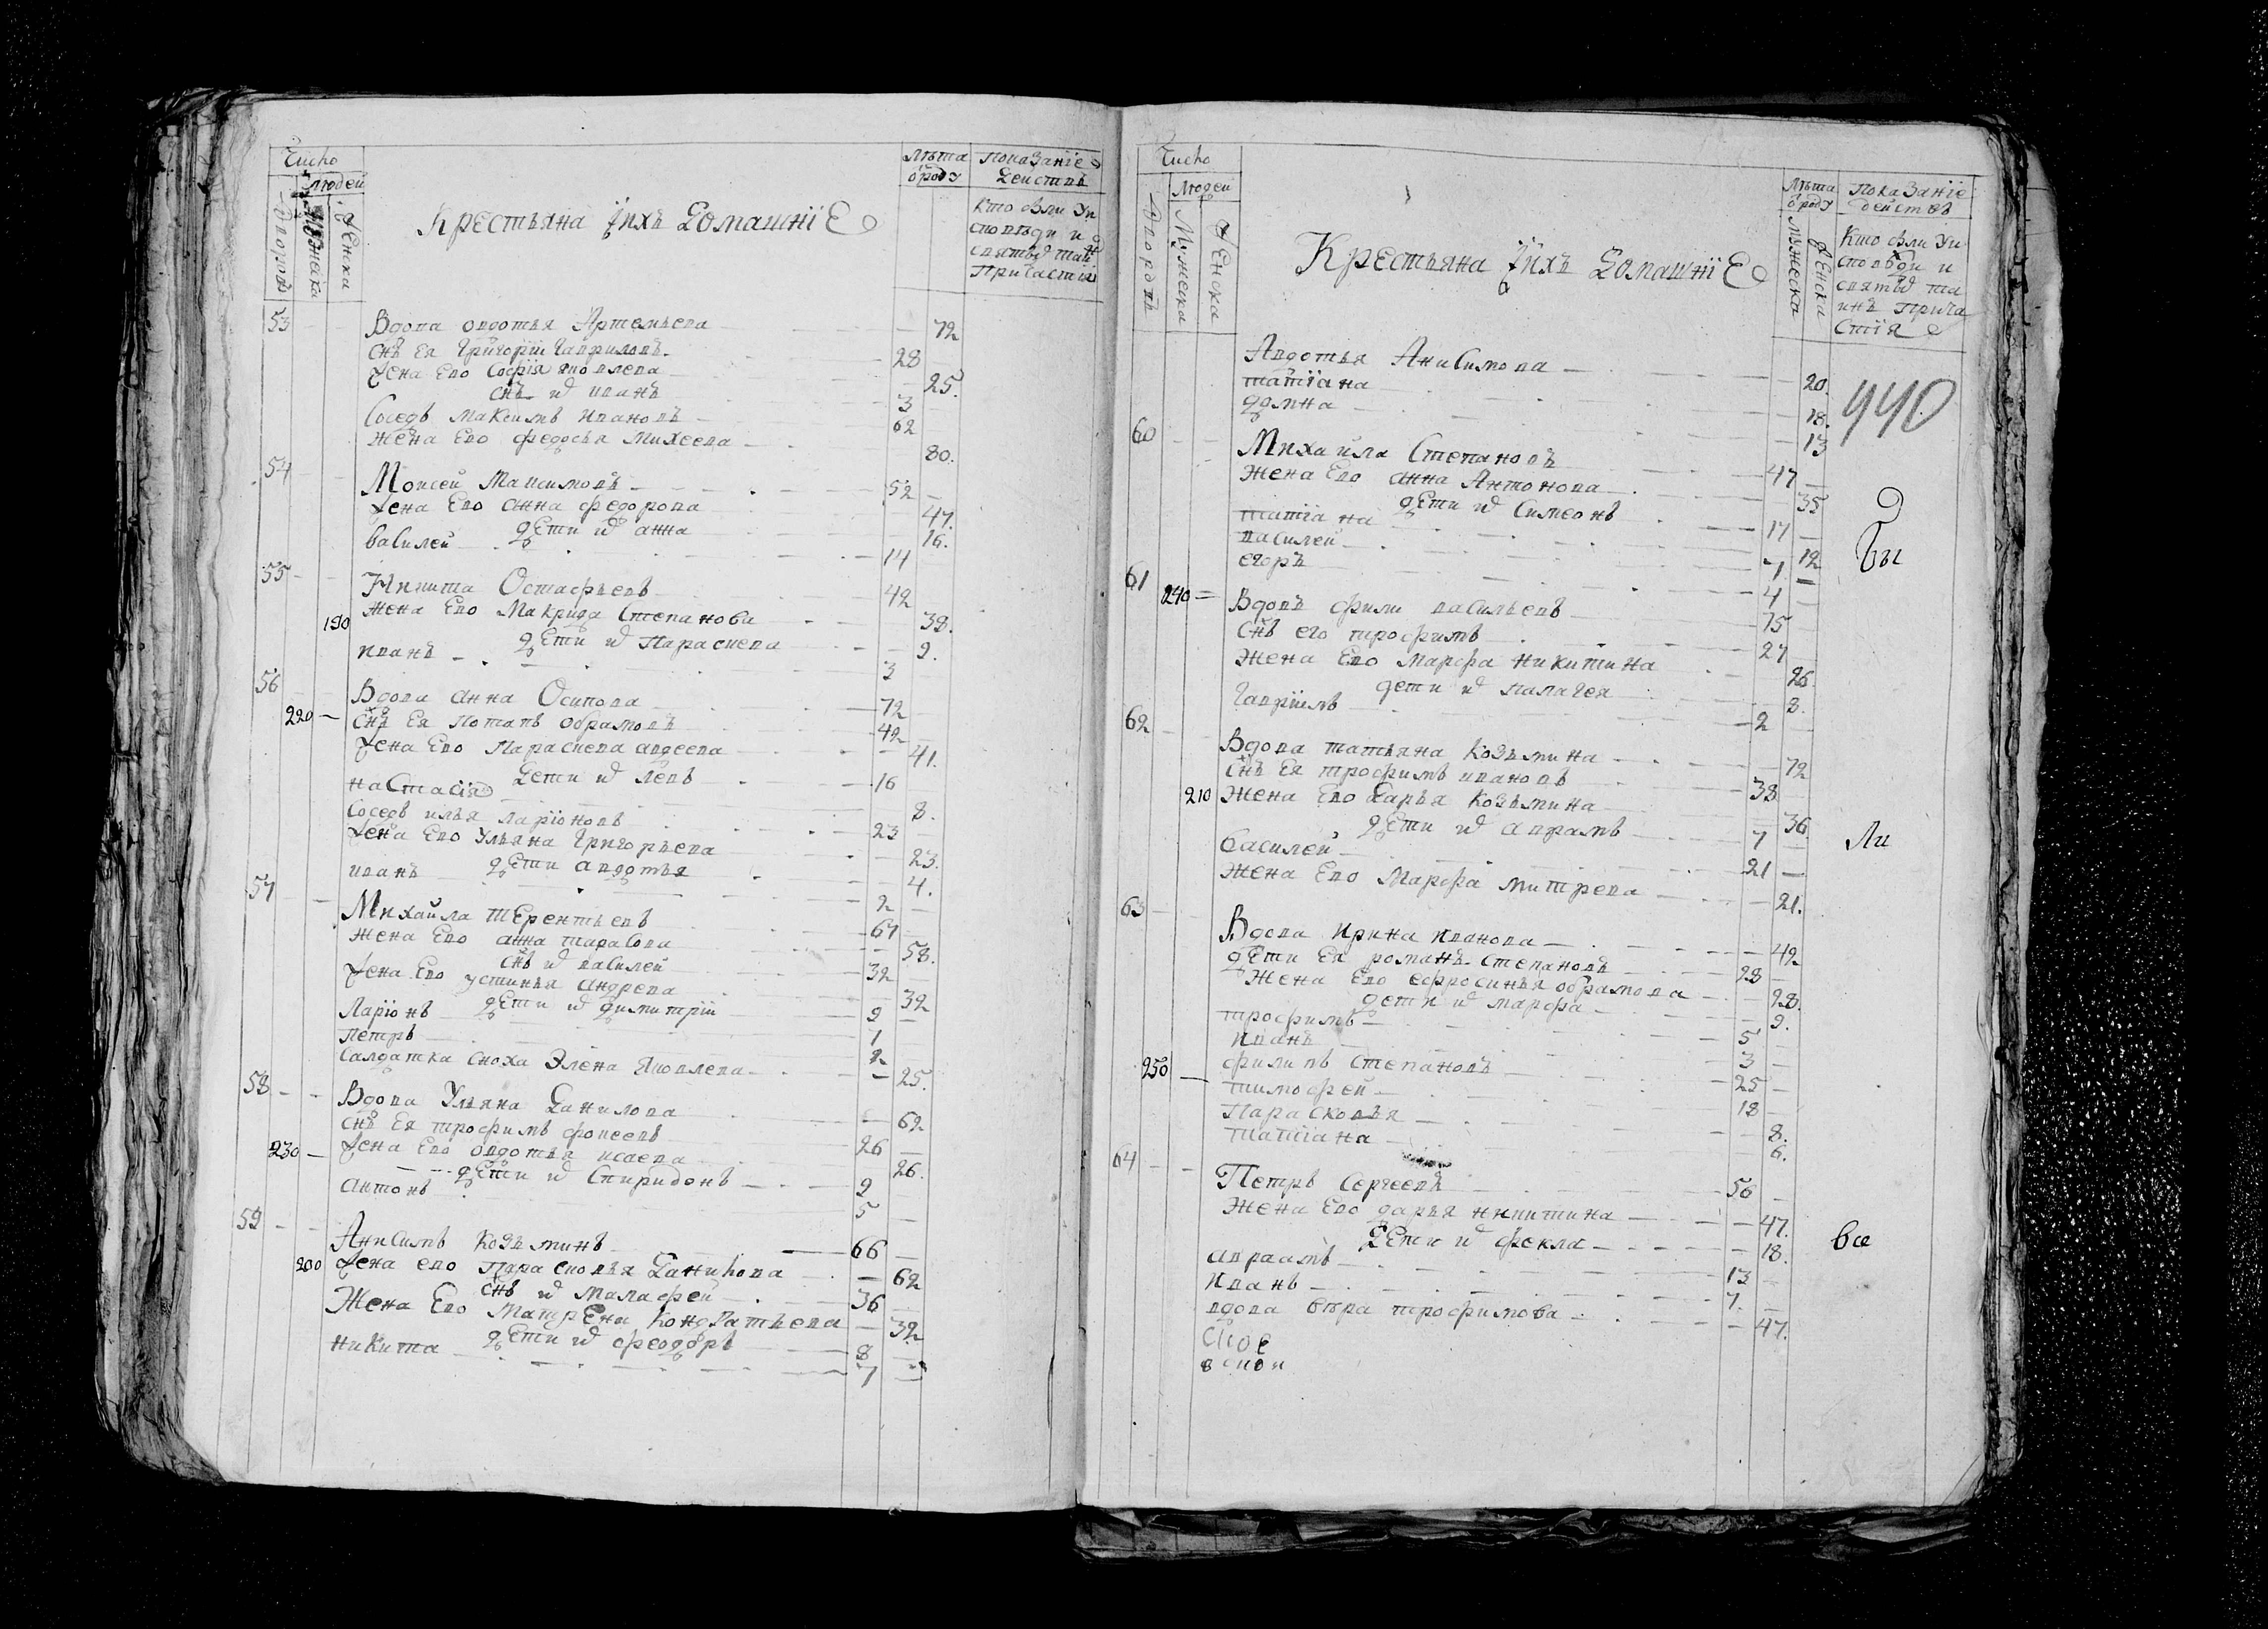 Число
Людей
дворовъ
мужеска
женска
Крестьяна ихъ Домашніе
Лѣта
ѿ роду
показаніе
Действъ
Кто были у и
сповѣди и
святыхъ таи
Причастія
53
Вдова овдотья Артемьева 72
снъ ея Григорій Гавриловъ 28
жена ево Софія яковлева 25.
снъ их иванъ 3
Соседъ максимъ ивановъ 62
жена ево федосья михеева 80.
54
Моисей Максимовъ 52
жена ево анна федорова 47.
дети их анна 16.
василей 14
55
Никита Остафьевъ 42
190 жена ево Макрида степанова 38.
дети их Параскева 9.
иванъ 3
56
Вдова анна Осипова 72
220 снъ ея потапъ обрамовъ 42
жена ево Параскева авдеева 41.
дети их левъ 16
настасія 8.
Соседъ илья ларіоновъ 23
жена ево ульяна Григорьева 23.
дети авдотья 4.
иванъ 2
57
Михайла терентьевъ 67
жена ево анна тарасова 58.
снъ их василей 32
жена ево устинья андрева 32
дети их димитріи 9
Ларіонъ 7
петръ 2
салдатка сноха Элена Яковлева 25.
58
Вдова Ульяна Данилова 62
снъ ея трофимъ фокеевъ 26
230 жена ево овдотья исаева 26.
дети их Спиридонъ 9
антонъ 5
59
Анисимъ козьминъ 66
200 жена ево Парасковья Данилова 62
снъ их малафей 36
Жена ево матрена кондратьева 32.
дети их феодоръ 8
никита 7
Число
Людей
дворовъ
Мужеска
женска
Крестьяна ихъ Домашніе
Лѣта
ѿ роду
мужеска
женска
показаніе
действъ
Кто были у и
споведи и
святых та
инъ прича
стія
Авдотья Анисимова 20.
татіана 18.
домна 13
440
60
Михайла Степановъ 47
жена ево анна Антонова 35
дети их Симеонъ 17
татіана 12
василей 7
егоръ 4
Бы
61
240 Вдовъ фили васильевъ 75
снъ его трофимъ 27
жена ево марфа никитина 26
дети их палагея 8.
Гавріилъ 2
62
Вдова татьяна козьмина 72
снъ ея трофимъ ивановъ 38
210 жена ево дарья козьмина 36
дети их аврамъ 7
василей 21
жена ево Марфа митрева 21.
Ли
63
Вдова ирина иванова 42
дети ея романъ степановъ 28
жена ево ефросинья обрамова 28.
дети их марфа 9.
трофимъ 5
иванъ 3
250 филипъ степановъ 25
тимофей 18
Парасковья 8.
татіана 6.
64
Петръ Сергеевъ 56
жена ево дарья никитина 47.
дети их фекла 18.
авраамъ 13
иванъ 7.
вдова вѣра трофимова 47.
все